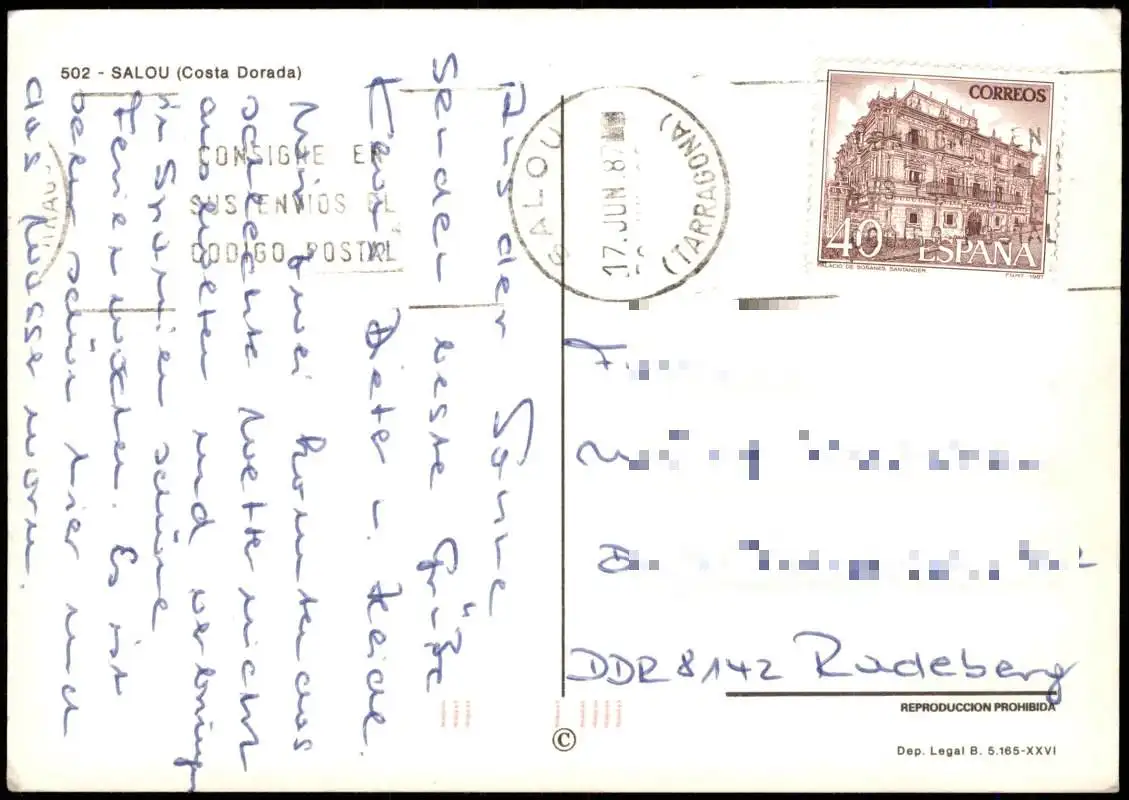 502 - SALOU (Costa Dorada)
CONSIGNE EN
SUS ENVIOS EL
CODIGO POSTAL
SALOU
17. JUN 87
(TARRAGONA)
CORREOS
40 ESPAÑA
PALACIO DE SOÑANES SANTANDER
F.N.M.T. 1987
Aus der Sonne
senden beste Grüße
Dieter u. Heide.
Wir zwei konnten das
schlechte Wetter nicht
aushalten und verbringen
in Spanien schöne
Ferienwochen. Es ist
sehr schön hier und
das Wasser warm.
DDR 8142 Radeberg
REPRODUCCION PROHIBIDA
©
Dep. Legal B. 5.165-XXVI